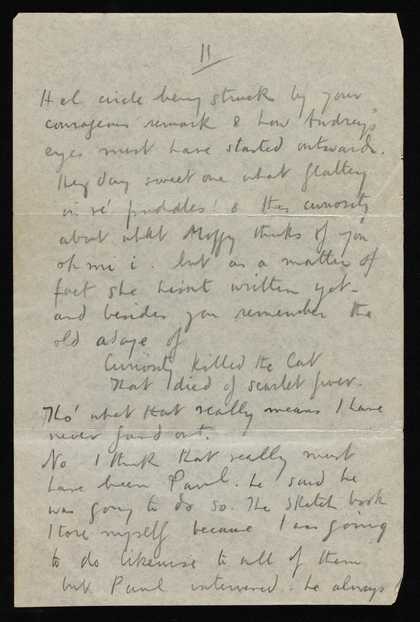 11
circle being struck by your
courageous remark & how Audrey's
eyes must have started outwards.
Hey day sweet one what flattery
in re' puddles! & this curiosity
about what Moppy thinks of you
oh mi i. but as a matter of
fact she hasn't written yet -
and besides you remember the
old adage of
Curiosity killed the Cat
That died of scarlet fever.
Tho' what that really means I have
never found out.
No I think that really must
have been Paul. he said he
was going to do so. The sketch book
I tore myself because I was going
to do likewise to all of them
but Paul intervened. he always